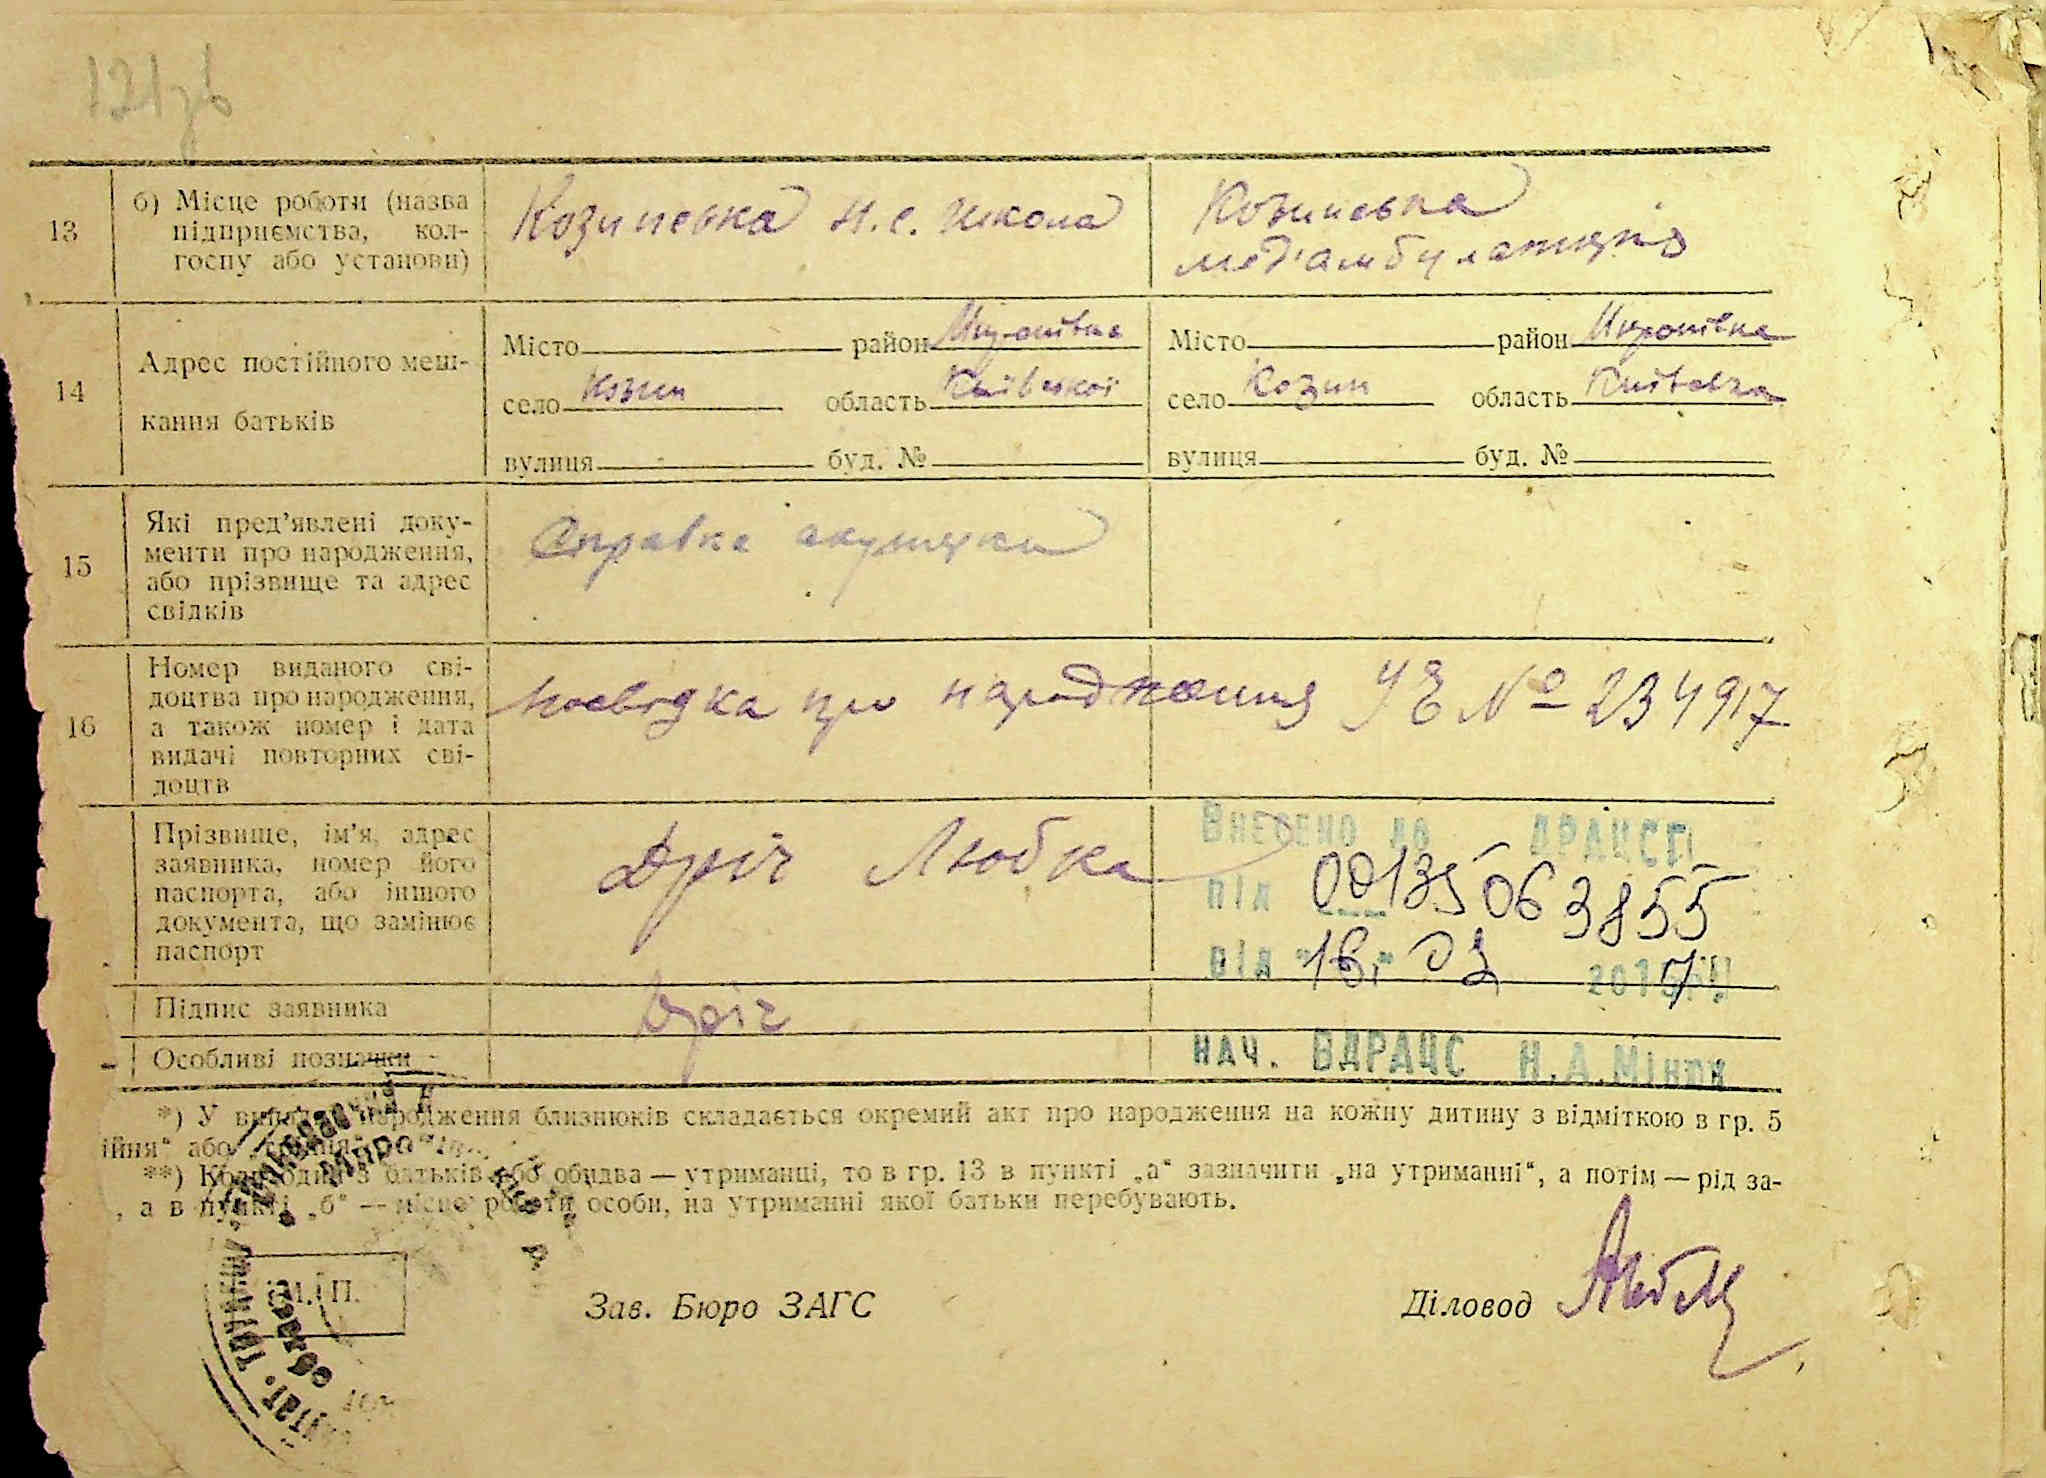 121зв
13
б) Місце роботи (назва
підприємства, кол-
госпу або установи)
Козинська н.с. школа
Козинська
мед'амбулаторія
14
Адрес постійного меш-
кання батьків
Місто район Миронівка
село Козин область Київської
вулиця буд. №
Місто район Миронівка
село Козин область Київська
вулиця буд. №
15
Які пред'явлені доку-
менти про народження,
або прізвище та адрес
свідків
Справка акушерки
16
Номер виданого сві-
доцтва про народження,
а також номер і дата
видачі повторних сві-
доцтв
посвідка про народження УЕ № 234917
Прізвище, ім'я, адрес
заявника, номер його
паспорта, або іншого
документа, що замінює
паспорт
Дріч Любка
Внесено до ДРАЦСГ
від
Підпис заявника
Дріч
Особливі позначки
нач. ВДРАЦС Н.А.
*) У випадку народження близнюків складається окремий акт про народження на кожну дитину з відміткою в гр. 5
ійня" або
**) Коли один з батьків або обидва — утриманці, то в гр. 13 в пункті „а" зазначити „на утриманні", а потім — рід за-
, а в пункті „б" — місце роботи особи, на утриманні якої батьки перебувають.
М. П.
Зав. Бюро ЗАГС
Діловод